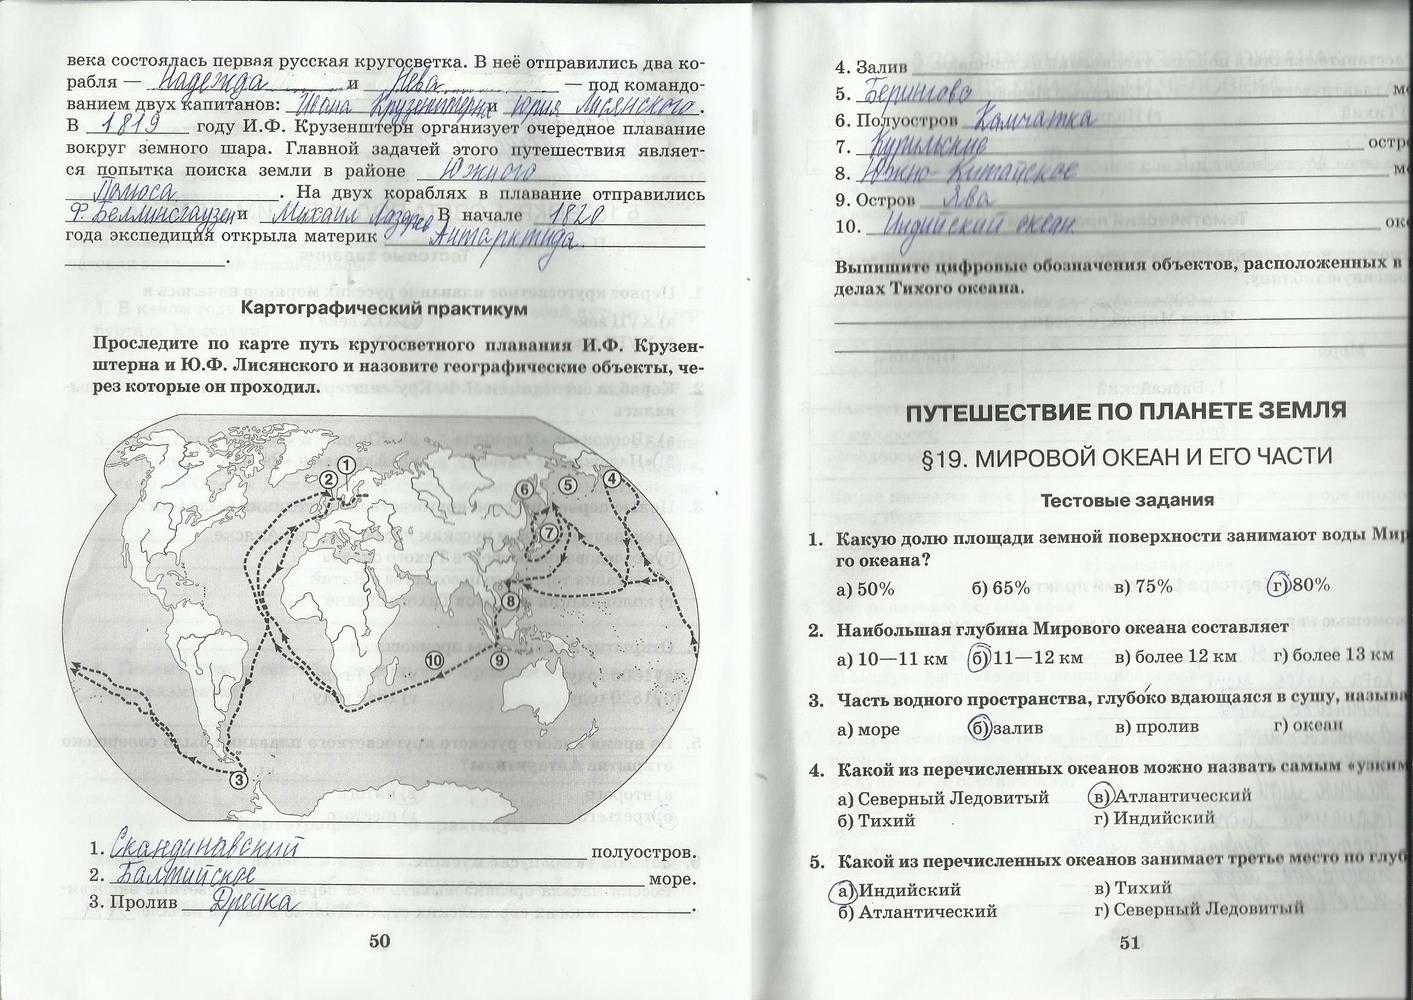 века состоялась первая русская кругосветка. В неё отправились два ко-
рабля — Надежда и Нева — под командо-
ванием двух капитанов: Ивана Крузенштерна и Юрия Лисянского.
В 1819 году И.Ф. Крузенштерн организует очередное плавание
вокруг земного шара. Главной задачей этого путешествия являет-
ся попытка поиска земли в районе Южного
Полюса. На двух кораблях в плавание отправились
Ф. Беллинсгаузен и Михаил Лазарев В начале 1820
года экспедиция открыла материк Антарктида.
.
Картографический практикум
Проследите по карте путь кругосветного плавания И.Ф. Крузен-
штерна и Ю.Ф. Лисянского и назовите географические объекты, че-
рез которые он проходил.
1
2
3
4
5
6
7
8
9
10
1. Скандинавский полуостров.
2. Балтийское море.
3. Пролив Дрейка.
50
4. Залив
5. Берингово м
6. Полуостров Камчатка
7. Курильские остр
8. Южно-Китайское м
9. Остров Ява
10. Индийский океан ок
Выпишите цифровые обозначения объектов, расположенных в
делах Тихого океана.
ПУТЕШЕСТВИЕ ПО ПЛАНЕТЕ ЗЕМЛЯ
§19. МИРОВОЙ ОКЕАН И ЕГО ЧАСТИ
Тестовые задания
1. Какую долю площади земной поверхности занимают воды Мир
го океана?
а) 50% б) 65% в) 75% г) 80%
2. Наибольшая глубина Мирового океана составляет
а) 10—11 км б) 11—12 км в) более 12 км г) более 13 км
3. Часть водного пространства, глубоко вдающаяся в сушу, называ
а) море б) залив в) пролив г) океан
4. Какой из перечисленных океанов можно назвать самым «узким
а) Северный Ледовитый в) Атлантический
б) Тихий г) Индийский
5. Какой из перечисленных океанов занимает третье место по глуб
а) Индийский в) Тихий
б) Атлантический г) Северный Ледовитый
51